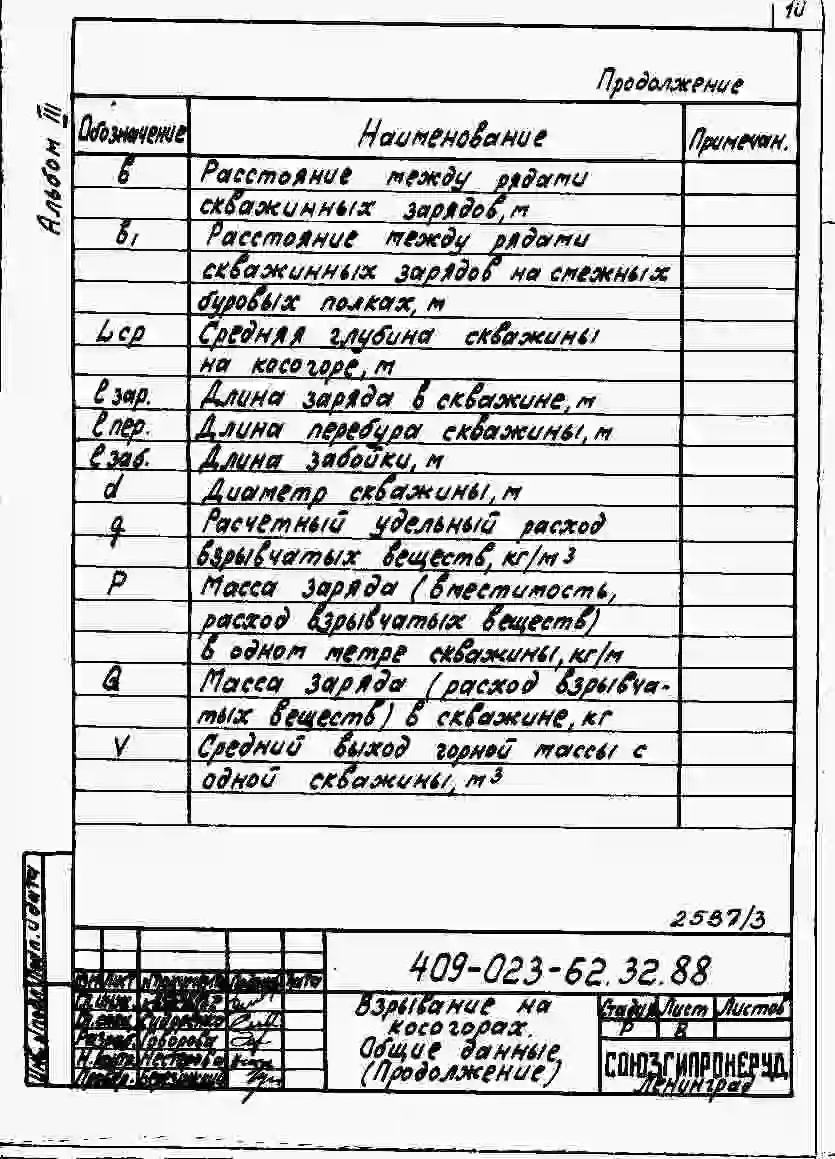 10
Продолжение
Альбом III
Обозначение Наименование Примечан.
в Расстояние между рядами
скважинных зарядов, м
в₁ Расстояние между рядами
скважинных зарядов на смежных
буровых полках, м
Lср Средняя глубина скважины
на косогоре, м
ℓзар. Длина заряда в скважине, м
ℓпер. Длина перебура скважины, м
ℓзаб. Длина забойки, м
d Диаметр скважины, м
q Расчетный удельный расход
взрывчатых веществ, кг/м³
P Масса заряда (вместимость,
расход взрывчатых веществ)
в одном метре скважины, кг/м
Q Масса заряда (расход взрывча-
тых веществ) в скважине, кг
V Средний выход горной массы с
одной скважины, м³
2587/3
409-023-62.32.88
Лист Дата
Взрывание на
косогорах.
Общие данные
(Продолжение)
Стадия Лист Листов
Р 8
СОЮЗГИПРОНЕРУД
Ленинград
Гл. инж.
Сидоренко
Разраб. Говорова
Н. контр. Нестерова
Подп. и дата